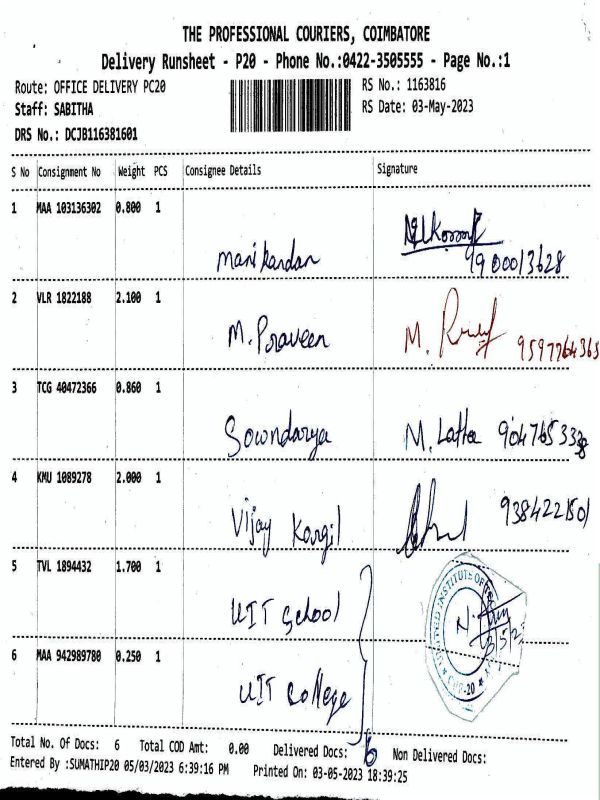 THE PROFESSIONAL COURIERS, COIMBATORE
Delivery Runsheet - P20 - Phone No.:0422-3505555 - Page No.:1
Route: OFFICE DELIVERY PC20
RS No.: 1163816
Staff: SABITHA
RS Date: 03-May-2023
DRS No.: DCJB116381601
S No Consignment No Weight PCS Consignee Details Signature
1 MAA 103136302 0.800 1
Manikandan
9900013628
2 VLR 1822188 2.100 1
M. Praveen M. 9597764365
3 TCG 40472366 0.860 1
Sowndarya M. Latha 9047653338
4 KMU 1089278 2.000 1
Vijay Kargil 9384221501
5 TVL 1894432 1.700 1
UIT School
UNITED INSTITUTE OF
N.
3/5/23
CBE-20
6 MAA 942989780 0.250 1
UIT College
Total No. Of Docs: 6 Total COD Amt: 0.00 Delivered Docs: 6 Non Delivered Docs:
Entered By :SUMATHIP20 05/03/2023 6:39:16 PM Printed On: 03-05-2023 18:39:25